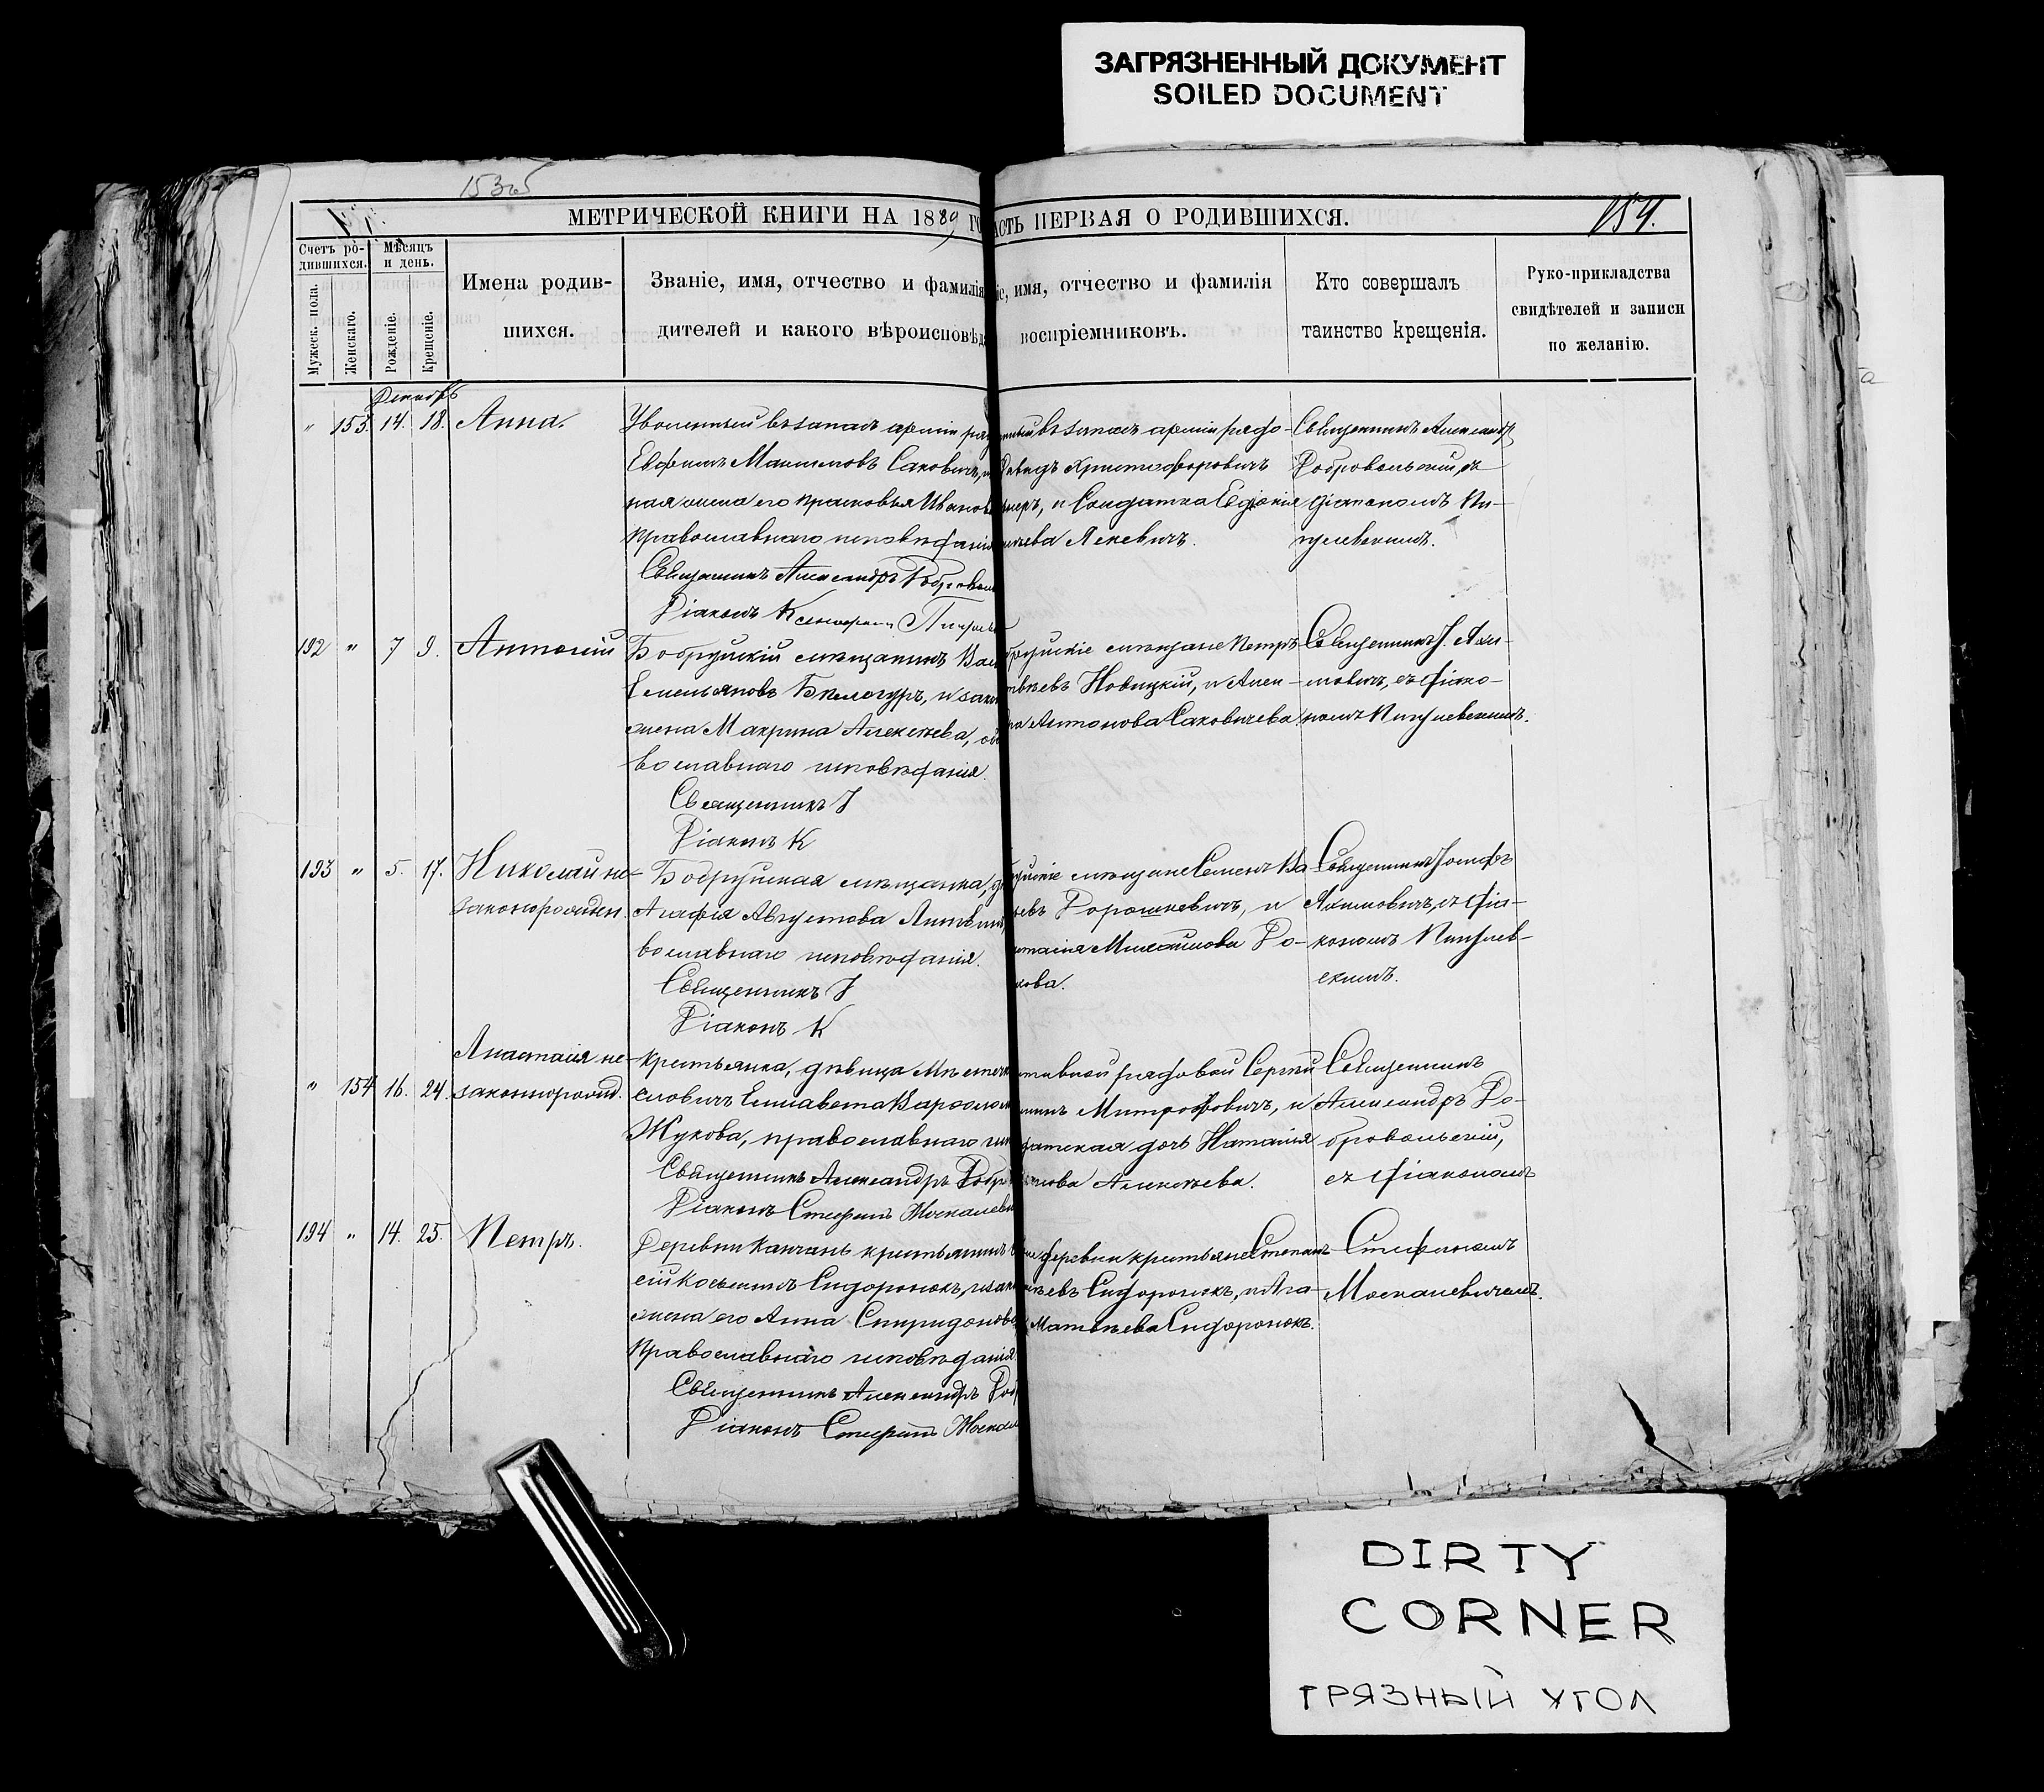 ЗАГРЯЗНЕННЫЙ ДОКУМЕНТ
SOILED DOCUMENT
МЕТРИЧЕСКОЙ КНИГИ НА 1889 ГО
АСТЬ ПЕРВАЯ О РОДИВШИХСЯ.
154.
Счетъ ро-
дившихся.
Мужеск. пола.
Женскаго.
Мѣсяцъ
и день.
Рожденіе.
Крещеніе.
Имена родив-
шихся.
Званіе, имя, отчество и фамилія
дителей и какого вѣроисповѣд
іе, имя, отчество и фамилія
воспріемниковъ.
Кто совершалъ
таинство крещенія.
Руко-прикладства
свидѣтелей и записи
по желанію.
Декабрь
" 153. 14. 18. Анна.
Уволенный въ запасъ арміи ряд
Евфимъ Максимовъ Саковичъ, и
ная жена его Прасковья Иванов
православнаго исповѣданія
Священникъ Александръ Добровол
Діаконъ
въ запасъ арміи рядо-
Давидъ Христофоровичъ
и Солдатка Евдокія
Яцкевичъ.
Священникъ Александръ
Добровольскій, съ
діакономъ Пи-
гулевскимъ.
192 " 7 9. Антоній
Бобруйскій мѣщанинъ Вас
Емельяновъ Бѣлогуръ, и зак
жена Макрина Алексѣева, об
вославнаго исповѣданія.
Священникъ І
Діаконъ К
бруйскіе мѣщане Петръ
твѣевъ Новицкій, и Алек-
ра Антонова Саковичева.
Священникъ І. Аки-
мовичъ, съ діако-
номъ Пигулевскимъ.
193 " 5. 17. Николай не-
законорожден.
Бобруйская мѣщанка, д
Агафія Августова
вославнаго исповѣданія.
Священникъ І
Діаконъ К
уйскіе мѣщане Семенъ Ва
евъ Дорошкевичъ, и
Михайлова До-
кова.
Священникъ Іосифъ
Акимовичъ, съ діа-
кономъ Пигулев-
скимъ.
" 154 16. 24. Анастасія не-
законнорожд.
Крестьянка, дѣвица Мѣстеч
Елисавета Варфолом
Жукова, православнаго исп
Священникъ Александръ Добр
Діаконъ Стефанъ Москалеви
рядовой Сергѣй
Митрофовичъ, и
датская дочь Наталія
Алексѣева.
Священникъ
Александръ До-
бровольскій,
съ діакономъ
194 " 14. 25. Петръ.
Деревни Качань крестьянинъ
сій Косьминъ Сидоронокъ, и зак
жена его Анна Спиридонов
православнаго исповѣданія
Священникъ Александръ Доб
Діаконъ Стефанъ Москал
деревни крестьяне Степанъ
Сидоронокъ, и Ага-
Матвѣева Сидоронокъ.
Стефаномъ
Москалевичемъ.
DIRTY
CORNER
ГРЯЗНЫЙ УГОЛ